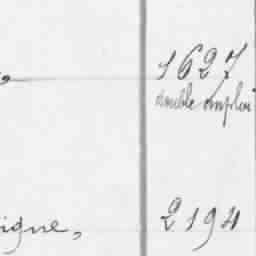 1627
double emploi
igne, 2194